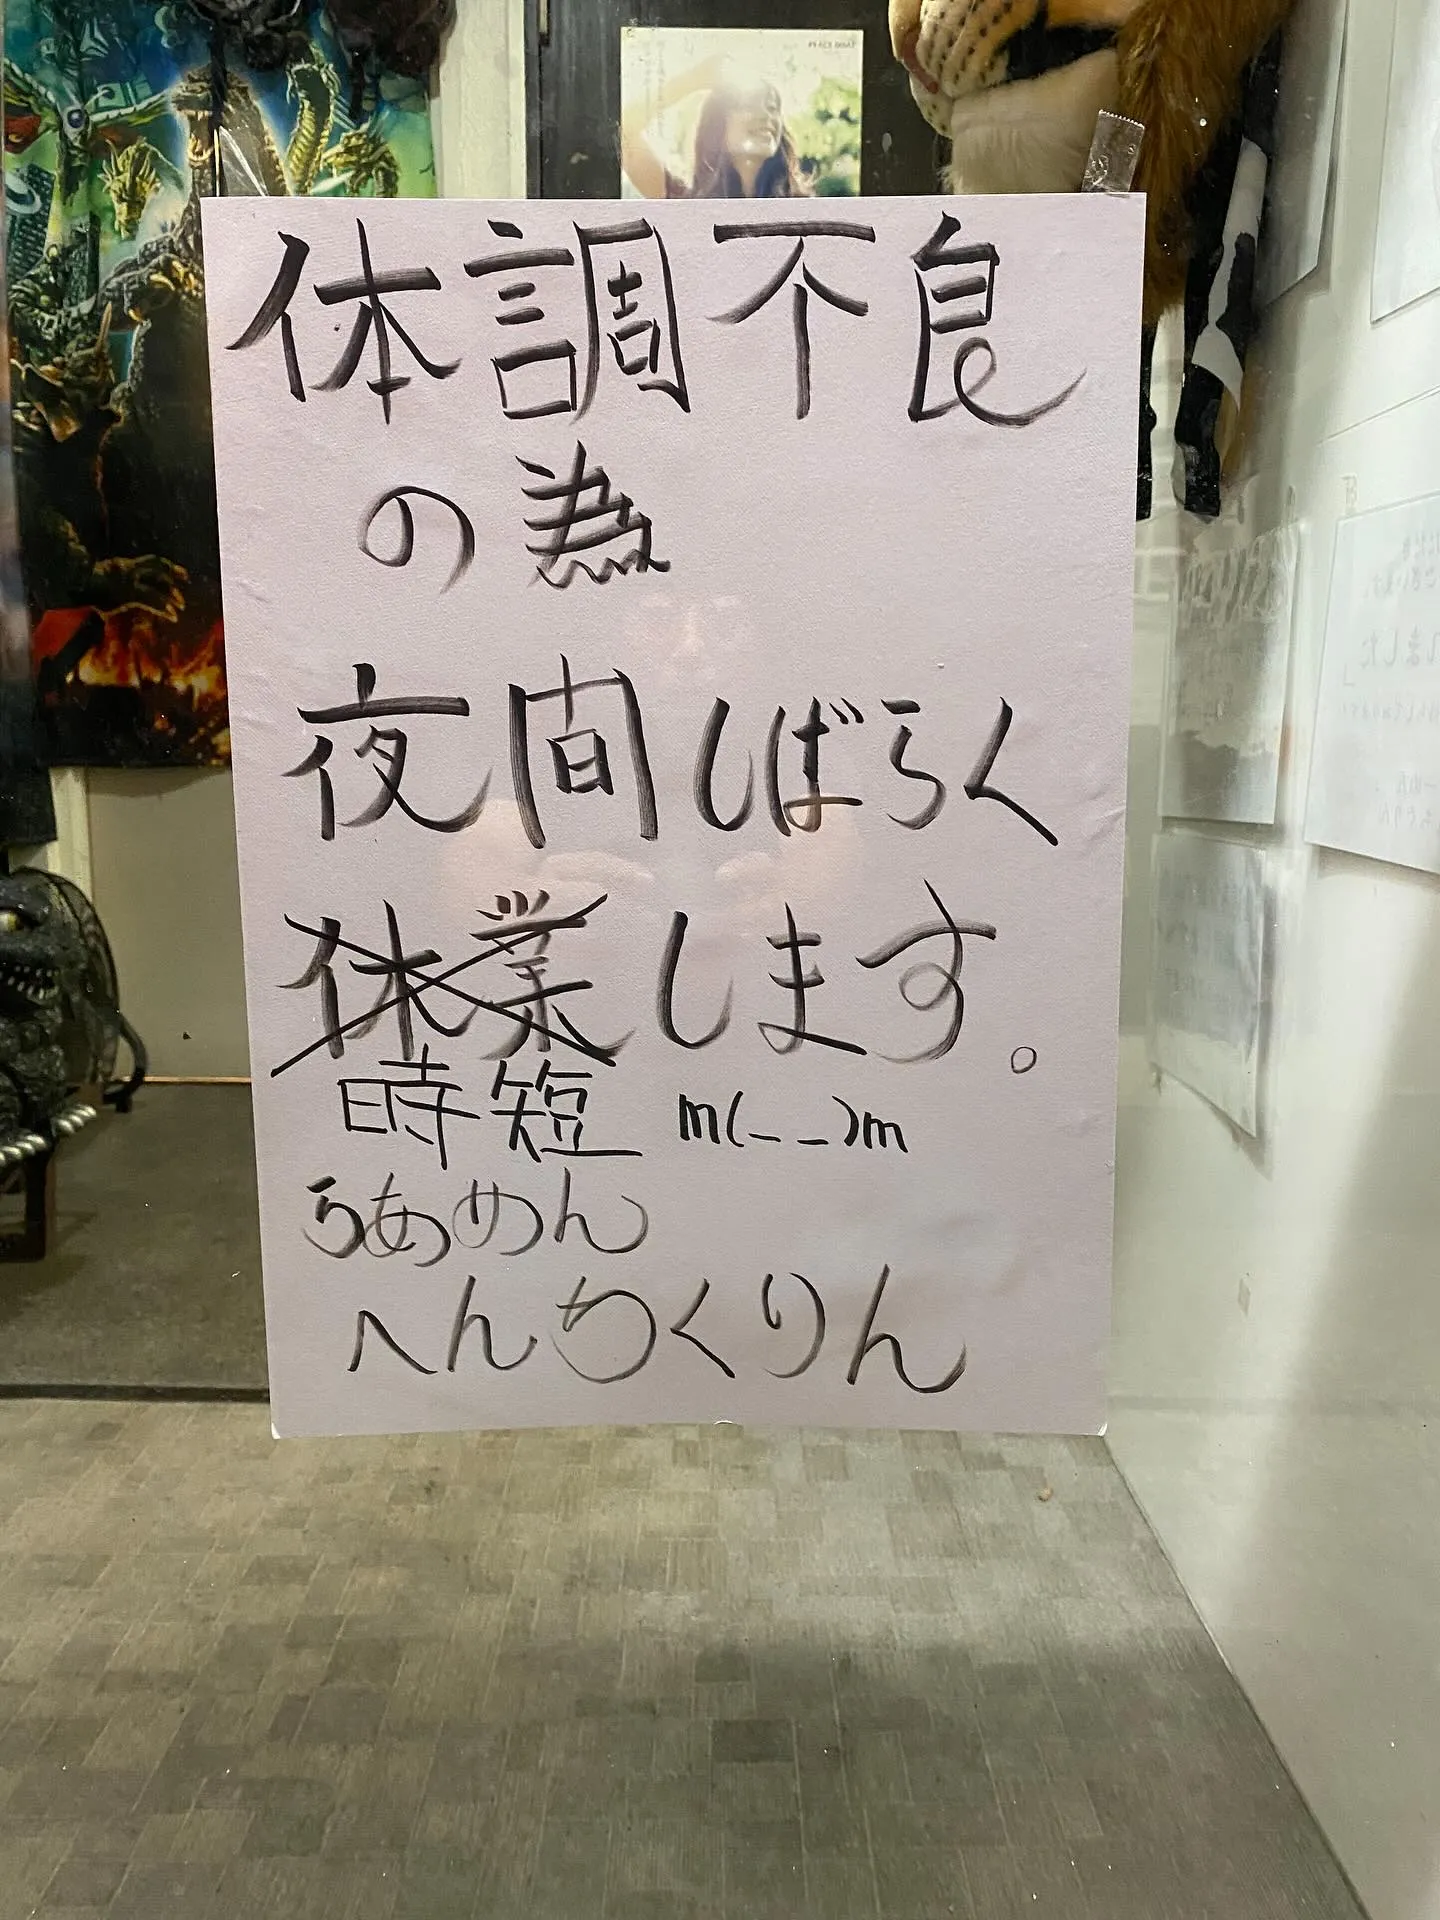 体調不良
の為
夜間しばらく
休業します。
時短 m(_ _)m
らあめん
へんちくりん
しました」